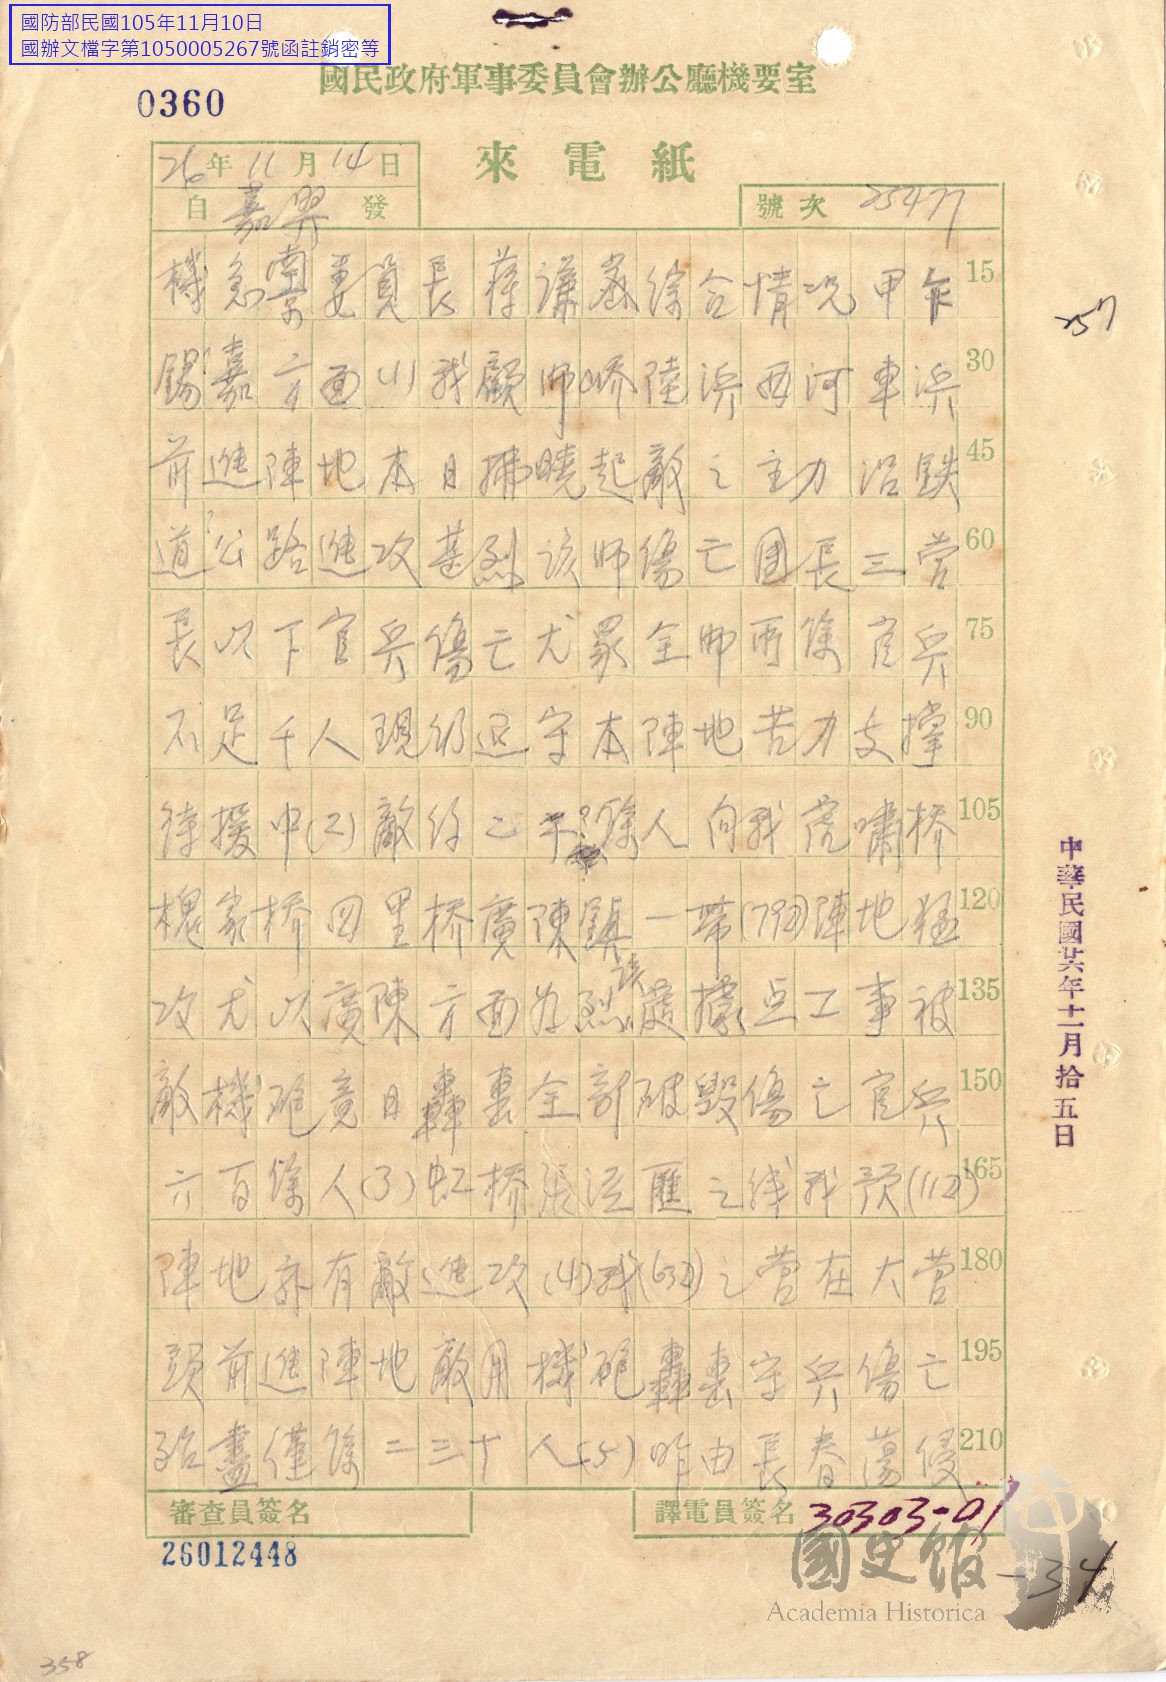 國防部民國105年11月10日
國辦文檔字第1050005267號函註銷密等
0360
國民政府軍事委員會辦公廳機要室
來電紙
26年11月14日
自嘉興發
號次 25477
機急 委員長蔣謙密綜合情況甲 15
錫嘉方面(1)我顧師 陸浜西河車浜 30
前進陣地本日拂曉起敵之主力沿鉄 45
道公路進攻甚烈該師傷亡團長三營 60
長以下官兵傷亡尤眾全師所餘官兵 75
不足千人現仍退守本陣地苦力支撐 90
待援中(2)敵約二千餘人向我虎嘯桥 105
槐家桥四里桥廣陳鎮一帶(79D)陣地猛 120
攻尤以廣陳方面為烈該處據点工事被 135
敵機砲竟日轟轰全部破毀傷亡官兵 150
六百餘人(3)虹桥張涇匯之綫我預(11D) 165
陣地亦有敵進攻(4)我(63D)之營在大營 180
頭前進陣地敵用機砲轟轰守兵傷亡 195
殆盡僅餘二三十人(5)昨由長春蕩侵 210
審查員簽名
譯電員簽名
30303-01
-34
26012448
257
中華民國廿六年十一月拾五日
國史館
Academia Historica
358